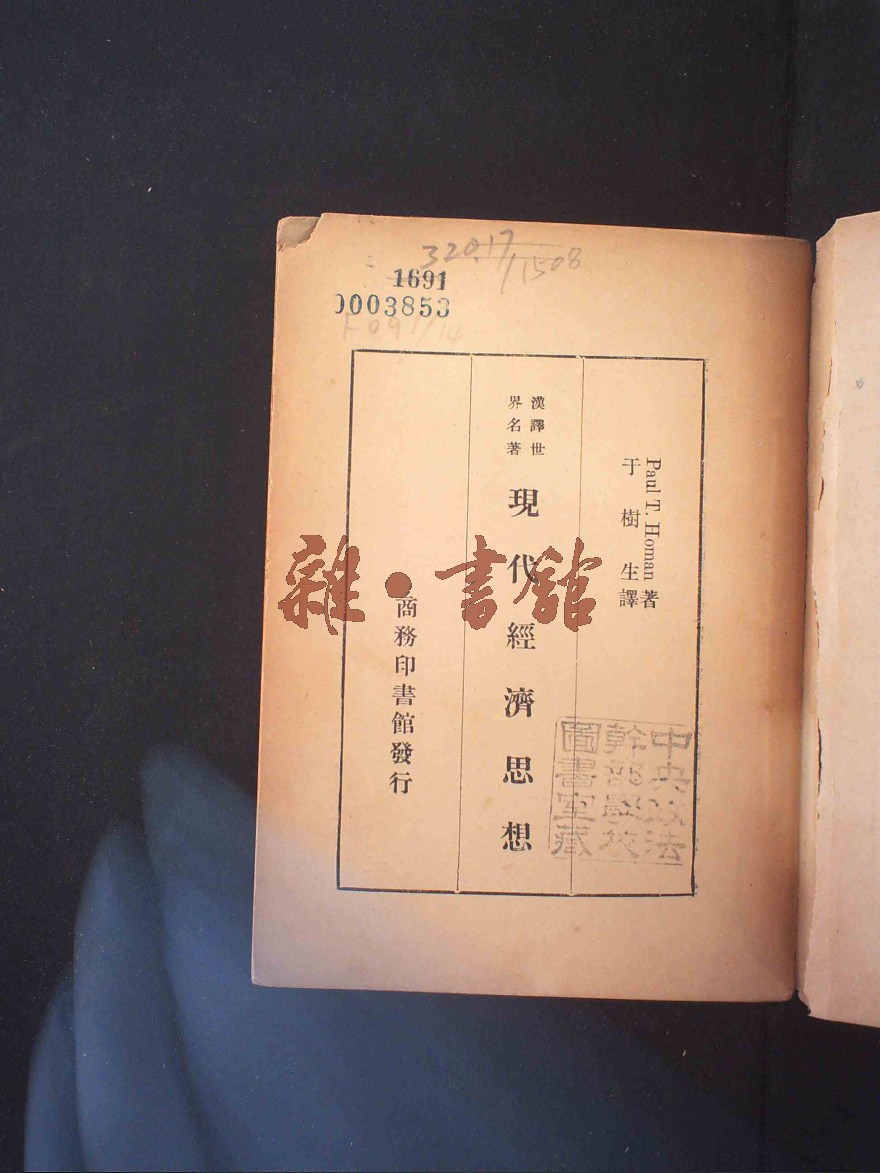 320.17
/1508
1691
0003853
Paul T. Homan 著
于樹生譯
漢譯世
界名著
現代經濟思想
商務印書館發行
雜·書館
中央政法
幹部學校
圖書室藏